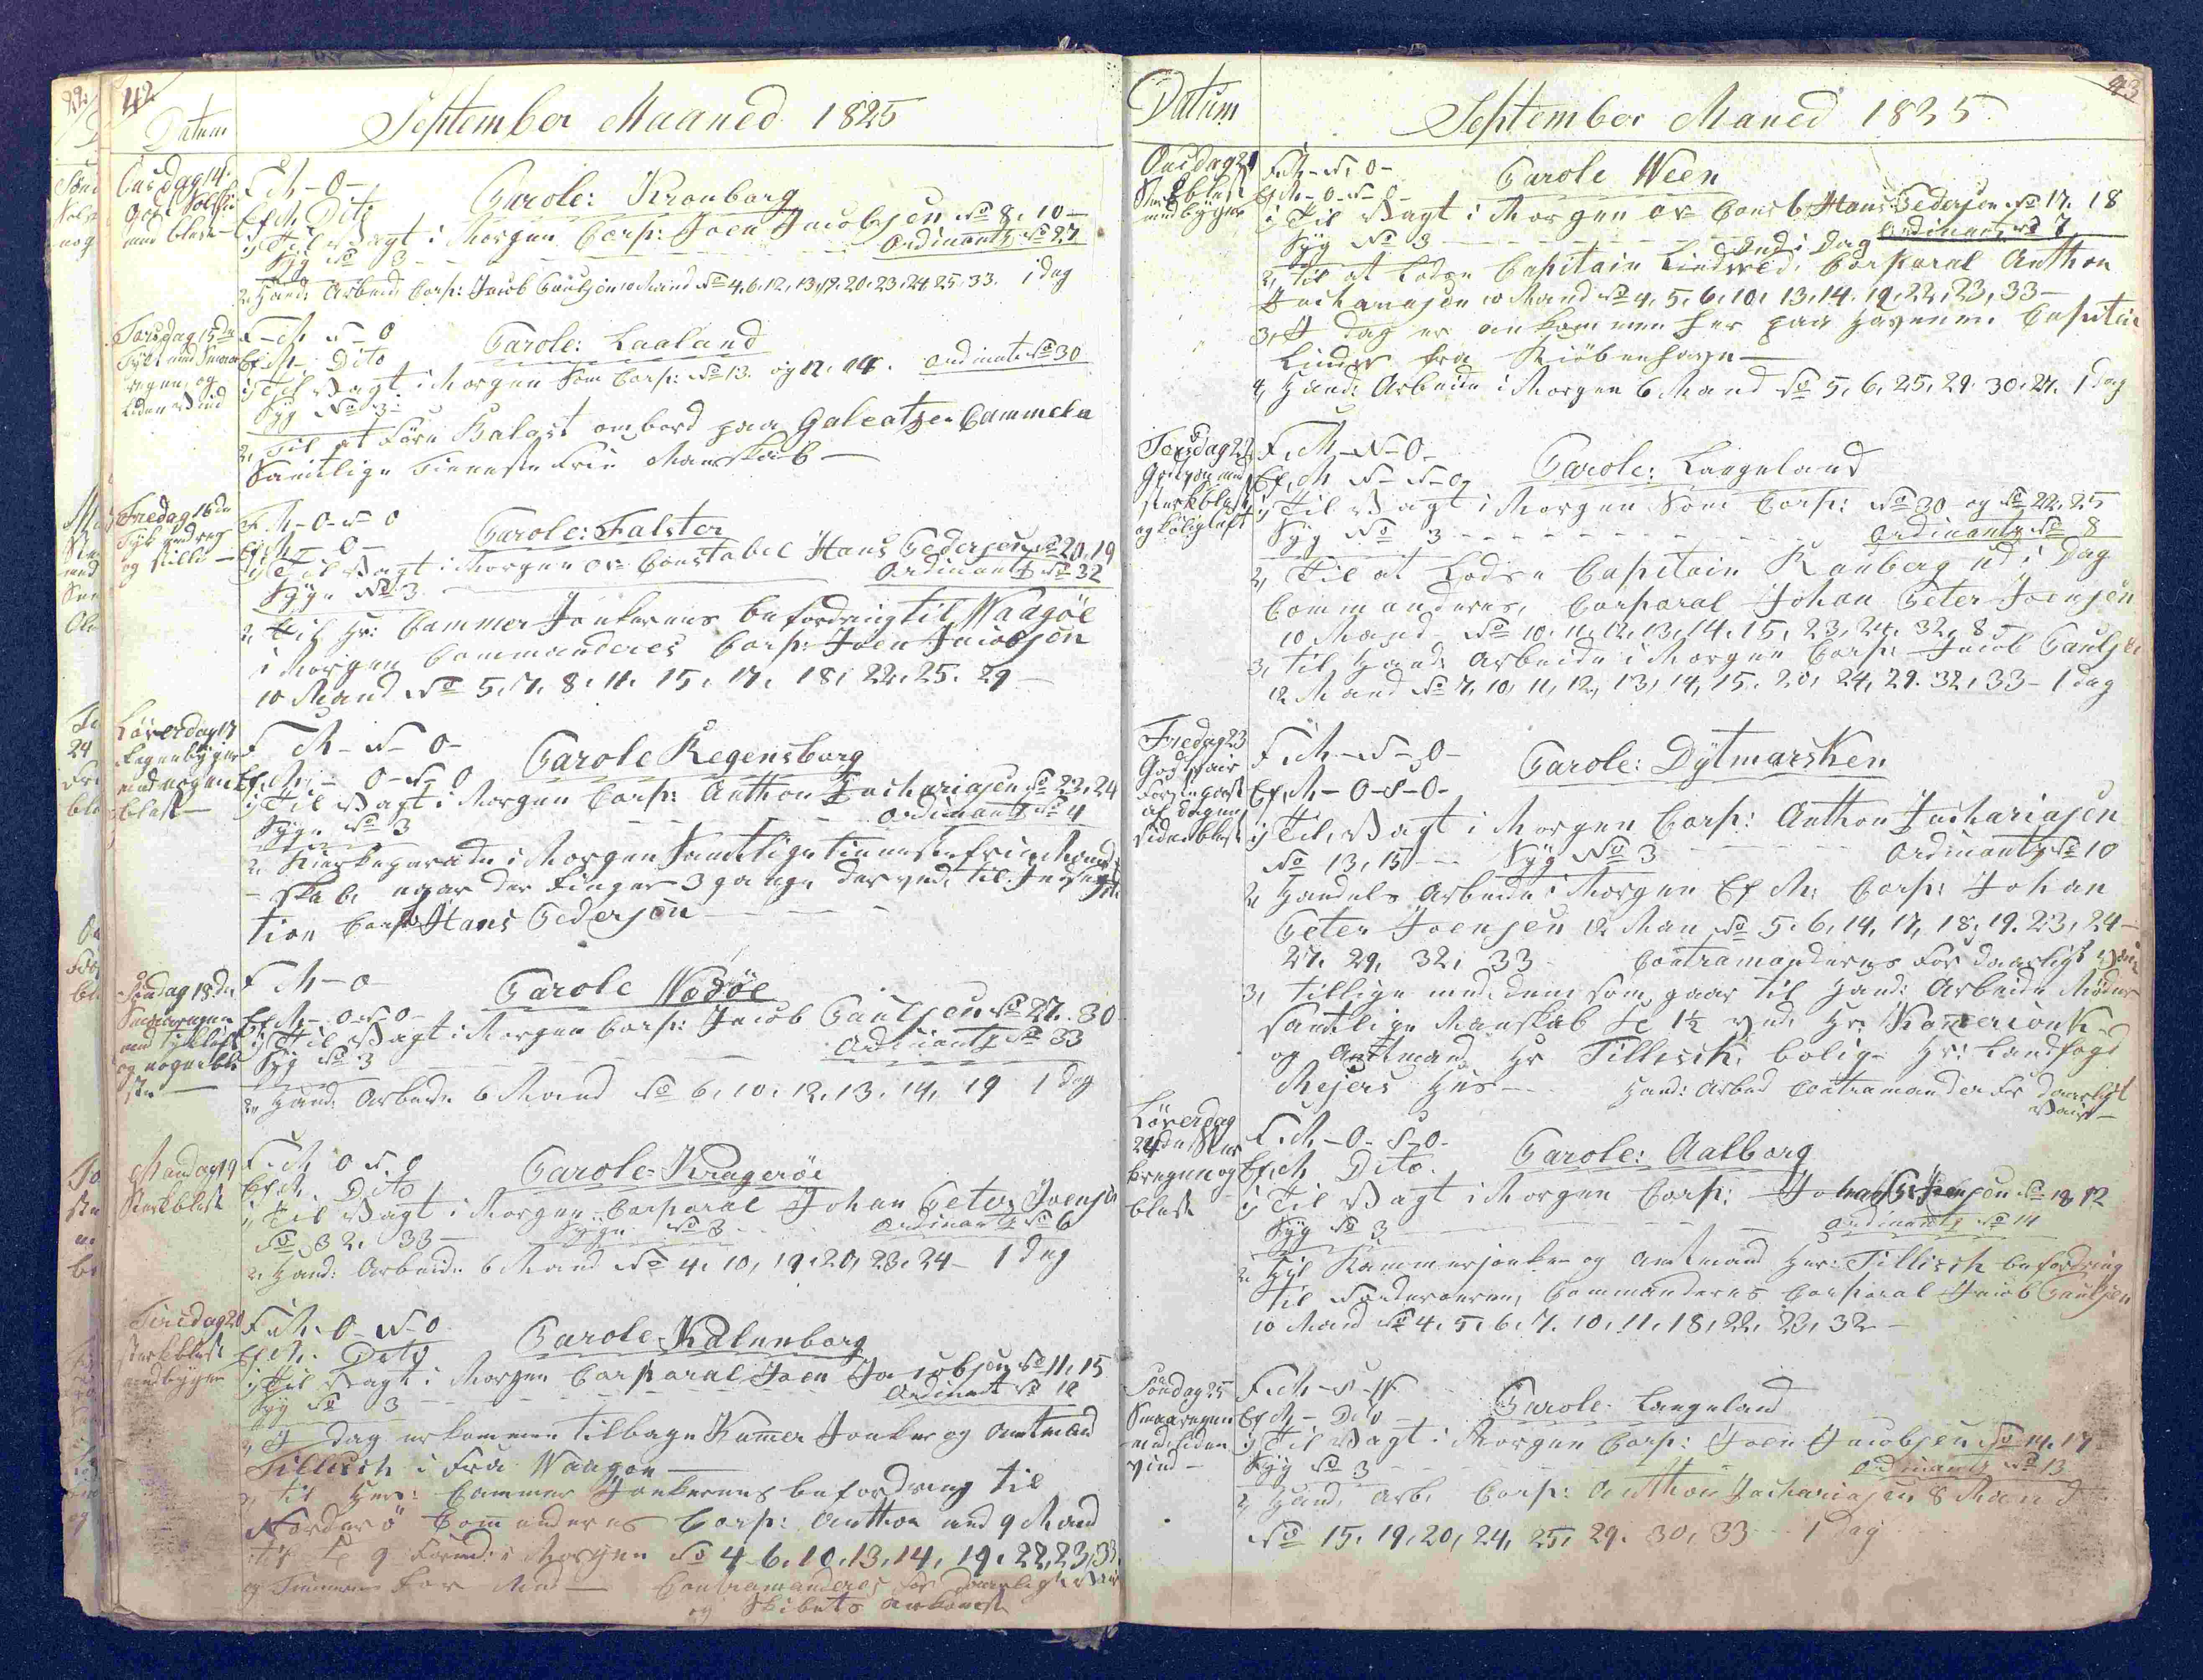 42
Datum
September Maaned 1825
Onsdag 14
God Solskin
med blæst
F M - O -
Ef M Dito
Parole: Kronborg
1, Til Vagt i Morgen Corp: Joen Jacobsen No 8. 10 -
Syg No 3
Ordinants No 27
2, Hand: Arbeide Corp: Jacob Poulsen 10 Mand No 4. 6. 12. 13. 17. 20. 23. 24. 25. 33. 1 dag
Torsdag 15de
Tykt med Smaa
regen og
liden Vind
F - M - N - O
Ef M - Dito
Parole: Laaland
1, Til Vagt i Morgen Som Corp: No 13. og 12. 14. Ordinants No 30
Syg No 3
2, Til at Føre Balast ombord paa Galeatzen
Samtlige Tienneste Frie Manskab
Fredag 16de
Tyk med reg
og stille
F. M - O - N - O
Ef M - O -
Parole: Falster
1, Til Vagt i Morgen Constabel Hans Pedersen No 20. 19
Syge No 3
Ordinants No 32
2, Til Hr: Cammer Junkerens befordring til Waagøe
i Morgen Commanderes Corp: Joen Jacobsen
10 Mand No 5. 7. 8. 11. 15. 17. 18. 22. 25. 29
Løverdag 17
Regenbyger
med nogen
blæst
F M - N - O -
Ef. M. - O - N - O
Parole Regensborg
1, Til Vagt i Morgen Corp: Anthon Zachariasen No 23. 24
Syge No 3
Ordinants No 4
2, Kierkeparade i Morgen Samtlige tienneste frie Mand
- skab, naar der Ringes 3 gange der ved til Inspec
tion Hans Pedersen
Søndag 18de
Smaaregen
med tyk luft
og nogen blæ
st
F M - O
Ef M - O - N - O -
Parole Nodøe
1, Til Vagt i Morgen Corp: Jacob Poulsen No 27. 30
Syg No 3
Ordinants No 33
2, Hand: Arbeide 6 Mand No 6. 10. 12. 13. 14. 19 1 dag
Mandag 19
Sterk blæst
F. M O N. O
Ef M. Dito
Parole: Kragerøe
1, Til Vagt i Morgen Corporal Johan Peter Joensen
No 32. 33 -
Syge No 3
Ordinants No 6
2, Hand: Arbeide 6 Mand No 4. 10, 19. 20, 23. 24 - 1 Dag
Tirsdag 20
sterk blæst
med byger
F. M. O - N - O
Ef M. Dito
Parole: Kalunborg
1, Til Vagt i Morgen Corporal Joen Jacobsen No 11. 15
Syg No 3
Ordinants No 12
2, I dag er kommen tilbage Kamer Junker og Amtmand
Tillisch i fra Waagøe
3, til Herr: Cammer Junkerens befordring til
Norderø Comanderes Corp: Anthon med 9 Mand
9 Form: i Morgen No 4. 6. 10. 13. 14. 19. 22, 23, 33
Contramanderes for daarligt Vair
og Skibets Ankomst
43
Datum
September Maned 1835
Onsdag 21
Sterk blæst
med byger
F. M - N. O -
Ef M - O - N - O
Parole Ween
1, Til Vagt i Morgen Hans Pedersen No 17. 18
Syg No 3
Ordinants No 7
2, Til at Lodse Capitain Lind ved, ind i Dag Corporal Anthon
Zachariasen 10 Mand No 4. 5. 6. 10. 13. 14. 19. 22. 23. 33 -
3, I dag er ankommen her paa Havnen Capitein
Linder fra Kiöbenhavn
4, Hand: Arbeide i Morgen 6 Mand No 5. 6. 25. 29. 30. 27. 1 Dag
Torsdag 22
sterk blæst
og kølig luft
F. M - N - O -
Ef. M N - N - O
Parole: Langeland
1, Til Vagt i Morgen Som Corp: No 30 og No 22. 25
Syg No 3
Ordinants No 8
2, Til at Lodse Capitain Rauberg ud i Dag
Commanderes, Corporal Johan Peter Joensen
10 Mand No 10. 11. 12. 13. 14. 15. 23. 24. 32. 8
3, til Hand: Arbeide i Morgen Corp: Jacob Poulsen
12 Mand No 7. 10. 11. 12. 13. 14. 15. 20. 24. 29. 32. 33 - 1 Dag
Fredag 23
God Vair
første part
af dagen
siden blæst
F. M - N - O -
Ef. M - O - S - O -
Parole: Dytmarsken
1, Til Vagt i Morgen Corp: Anthon Zachariasen
No 13, 15 Syg No 3
Ordinants No 10
2, Handels Arbeide i Morgen Ef M: Corp: Johan
Peter Joensen 12 Man No 5. 6. 14. 17. 18. 19. 23. 24 -
27. 29. 32. 33 Contramanderes For daarligt Vair
3, tillige med dem som gaar til Hand: Arbeide Møder
samtlige Manskab Kl 1½ ved Hr: Kamerjonk
og Amtmand Hr Tillisch, bolig Hr: Landfogd
Mejers Hus - Hand: Arbed Contramander for daarligt
Vair -
Løverdag
24de
regen og
blæst
F. M. - O - S - O -
Ef. M Dito.
Parole: Aalborg
1, Til Vagt i Morgen Corp: No 18, 12
Syg No 3
Ordinants No 14
2, Til Kammerjonker og Amtmand Her: Tillisch befordring
til Norderøerne, Commanderes Corporal Jacob Poulsen
10 Mand No 4. 5. 6. 7. 10. 11. 18. 22. 23. 32 -
Søndag 25
Smaaregen
med liden
vind -
F. M - S - W
Ef M - Dito
Parole: Langeland
1, Til Vagt i Morgen Corp: Joen Jacobsen No 14. 17
Syg No 3
Ordinants No 13
2, Hand: Arb: Corp: Anthon Zachariasen 8 Mand
No 15. 19. 20. 24. 25. 29. 30. 33 1 Dag